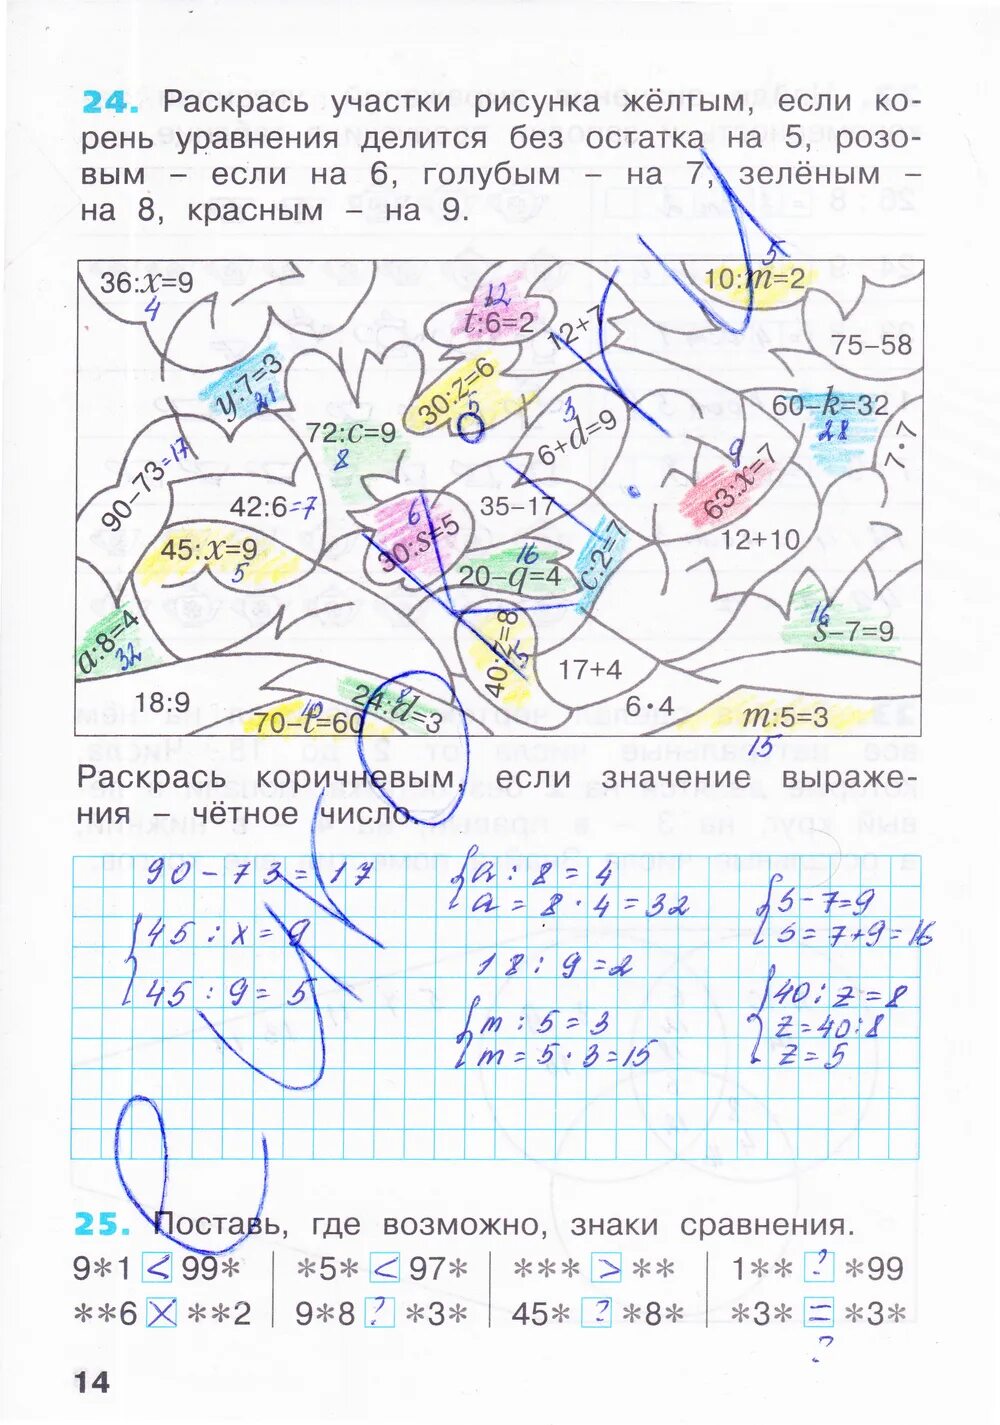 24. Раскрась участки рисунка жёлтым, если ко-
рень уравнения делится без остатка на 5, розо-
вым – если на 6, голубым – на 7, зелёным –
на 8, красным – на 9.
36:x=9
4
t:6=2
12
12+7
10:m=2
5
75–58
y:7=3
21
30:z=6
5
72:c=9
8
6+d=9
3
60–k=32
28
7·7
90–73=17
42:6=7
35–17
63:x=7
9
12+10
45:x=9
5
30:s=5
6
20–q=4
16
c:2=7
a:8=4
32
40:z=8
5
s–7=9
16
17+4
18:9
70–t=60
10
24:d=3
8
6·4
m:5=3
15
Раскрась коричневым, если значение выраже-
ния – чётное число.
90–73=17
a:8=4
a=8·4=32
s–7=9
s=7+9=16
45:x=9
45:9=5
18:9=2
m:5=3
m=5·3=15
40:z=8
z=40:8
z=5
25. Поставь, где возможно, знаки сравнения.
9*1 < 99* *5* < 97* *** > ** 1** ? *99
**6 X **2 9*8 ? *3* 45* ? *8* *3* = *3*
?
14